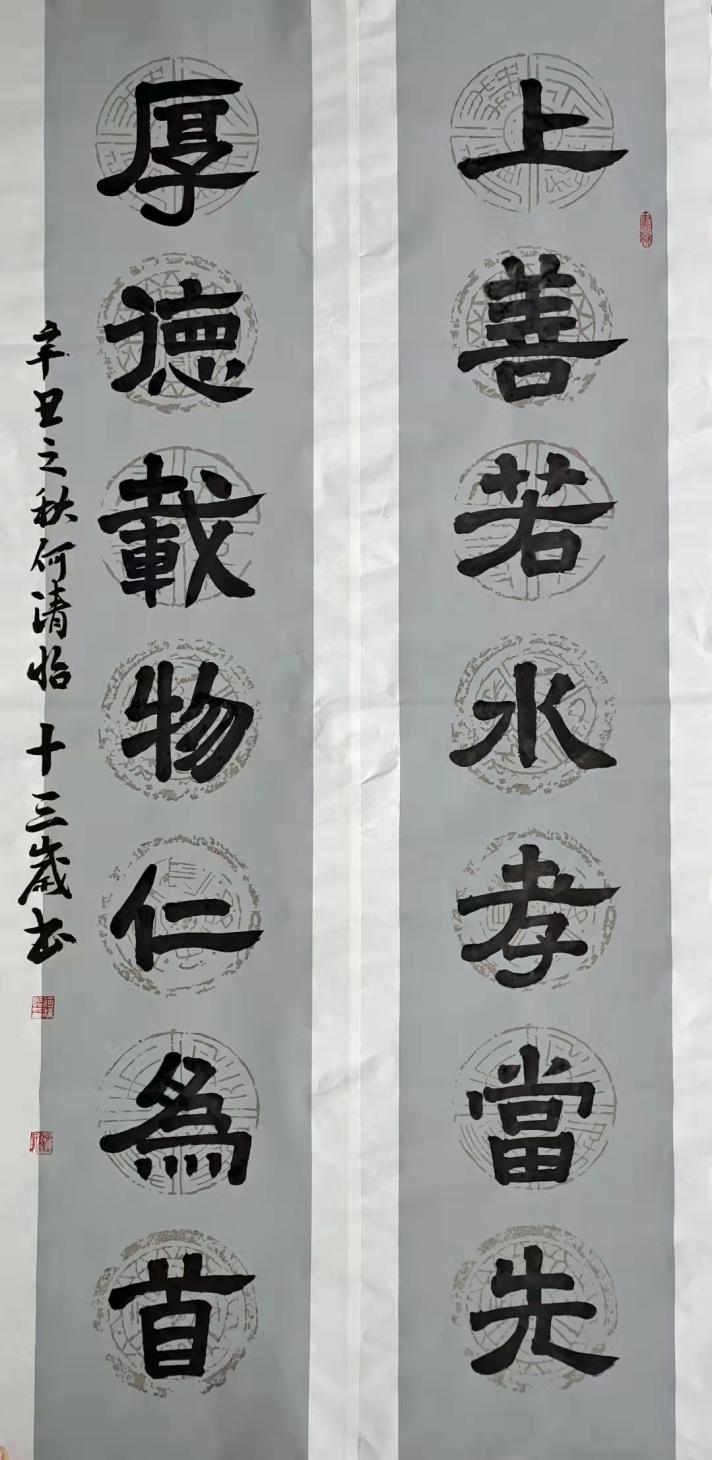 上善若水孝當先
厚德載物仁為首
辛丑之秋何清怡十三歲書